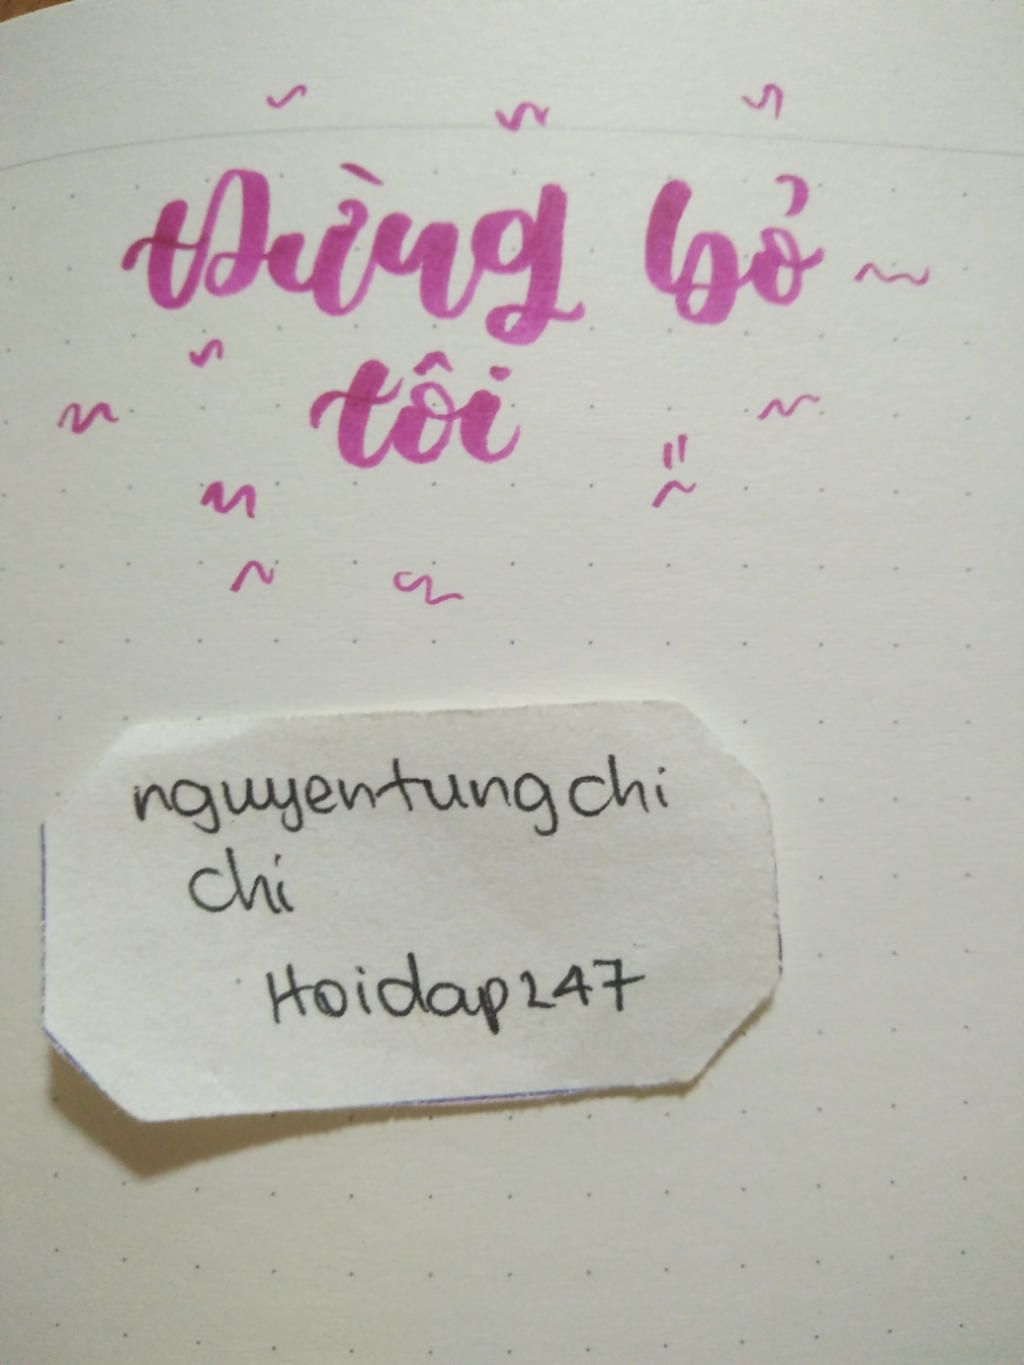 Đừng bỏ
tôi
nguyentungchi
chi
Hoidap247